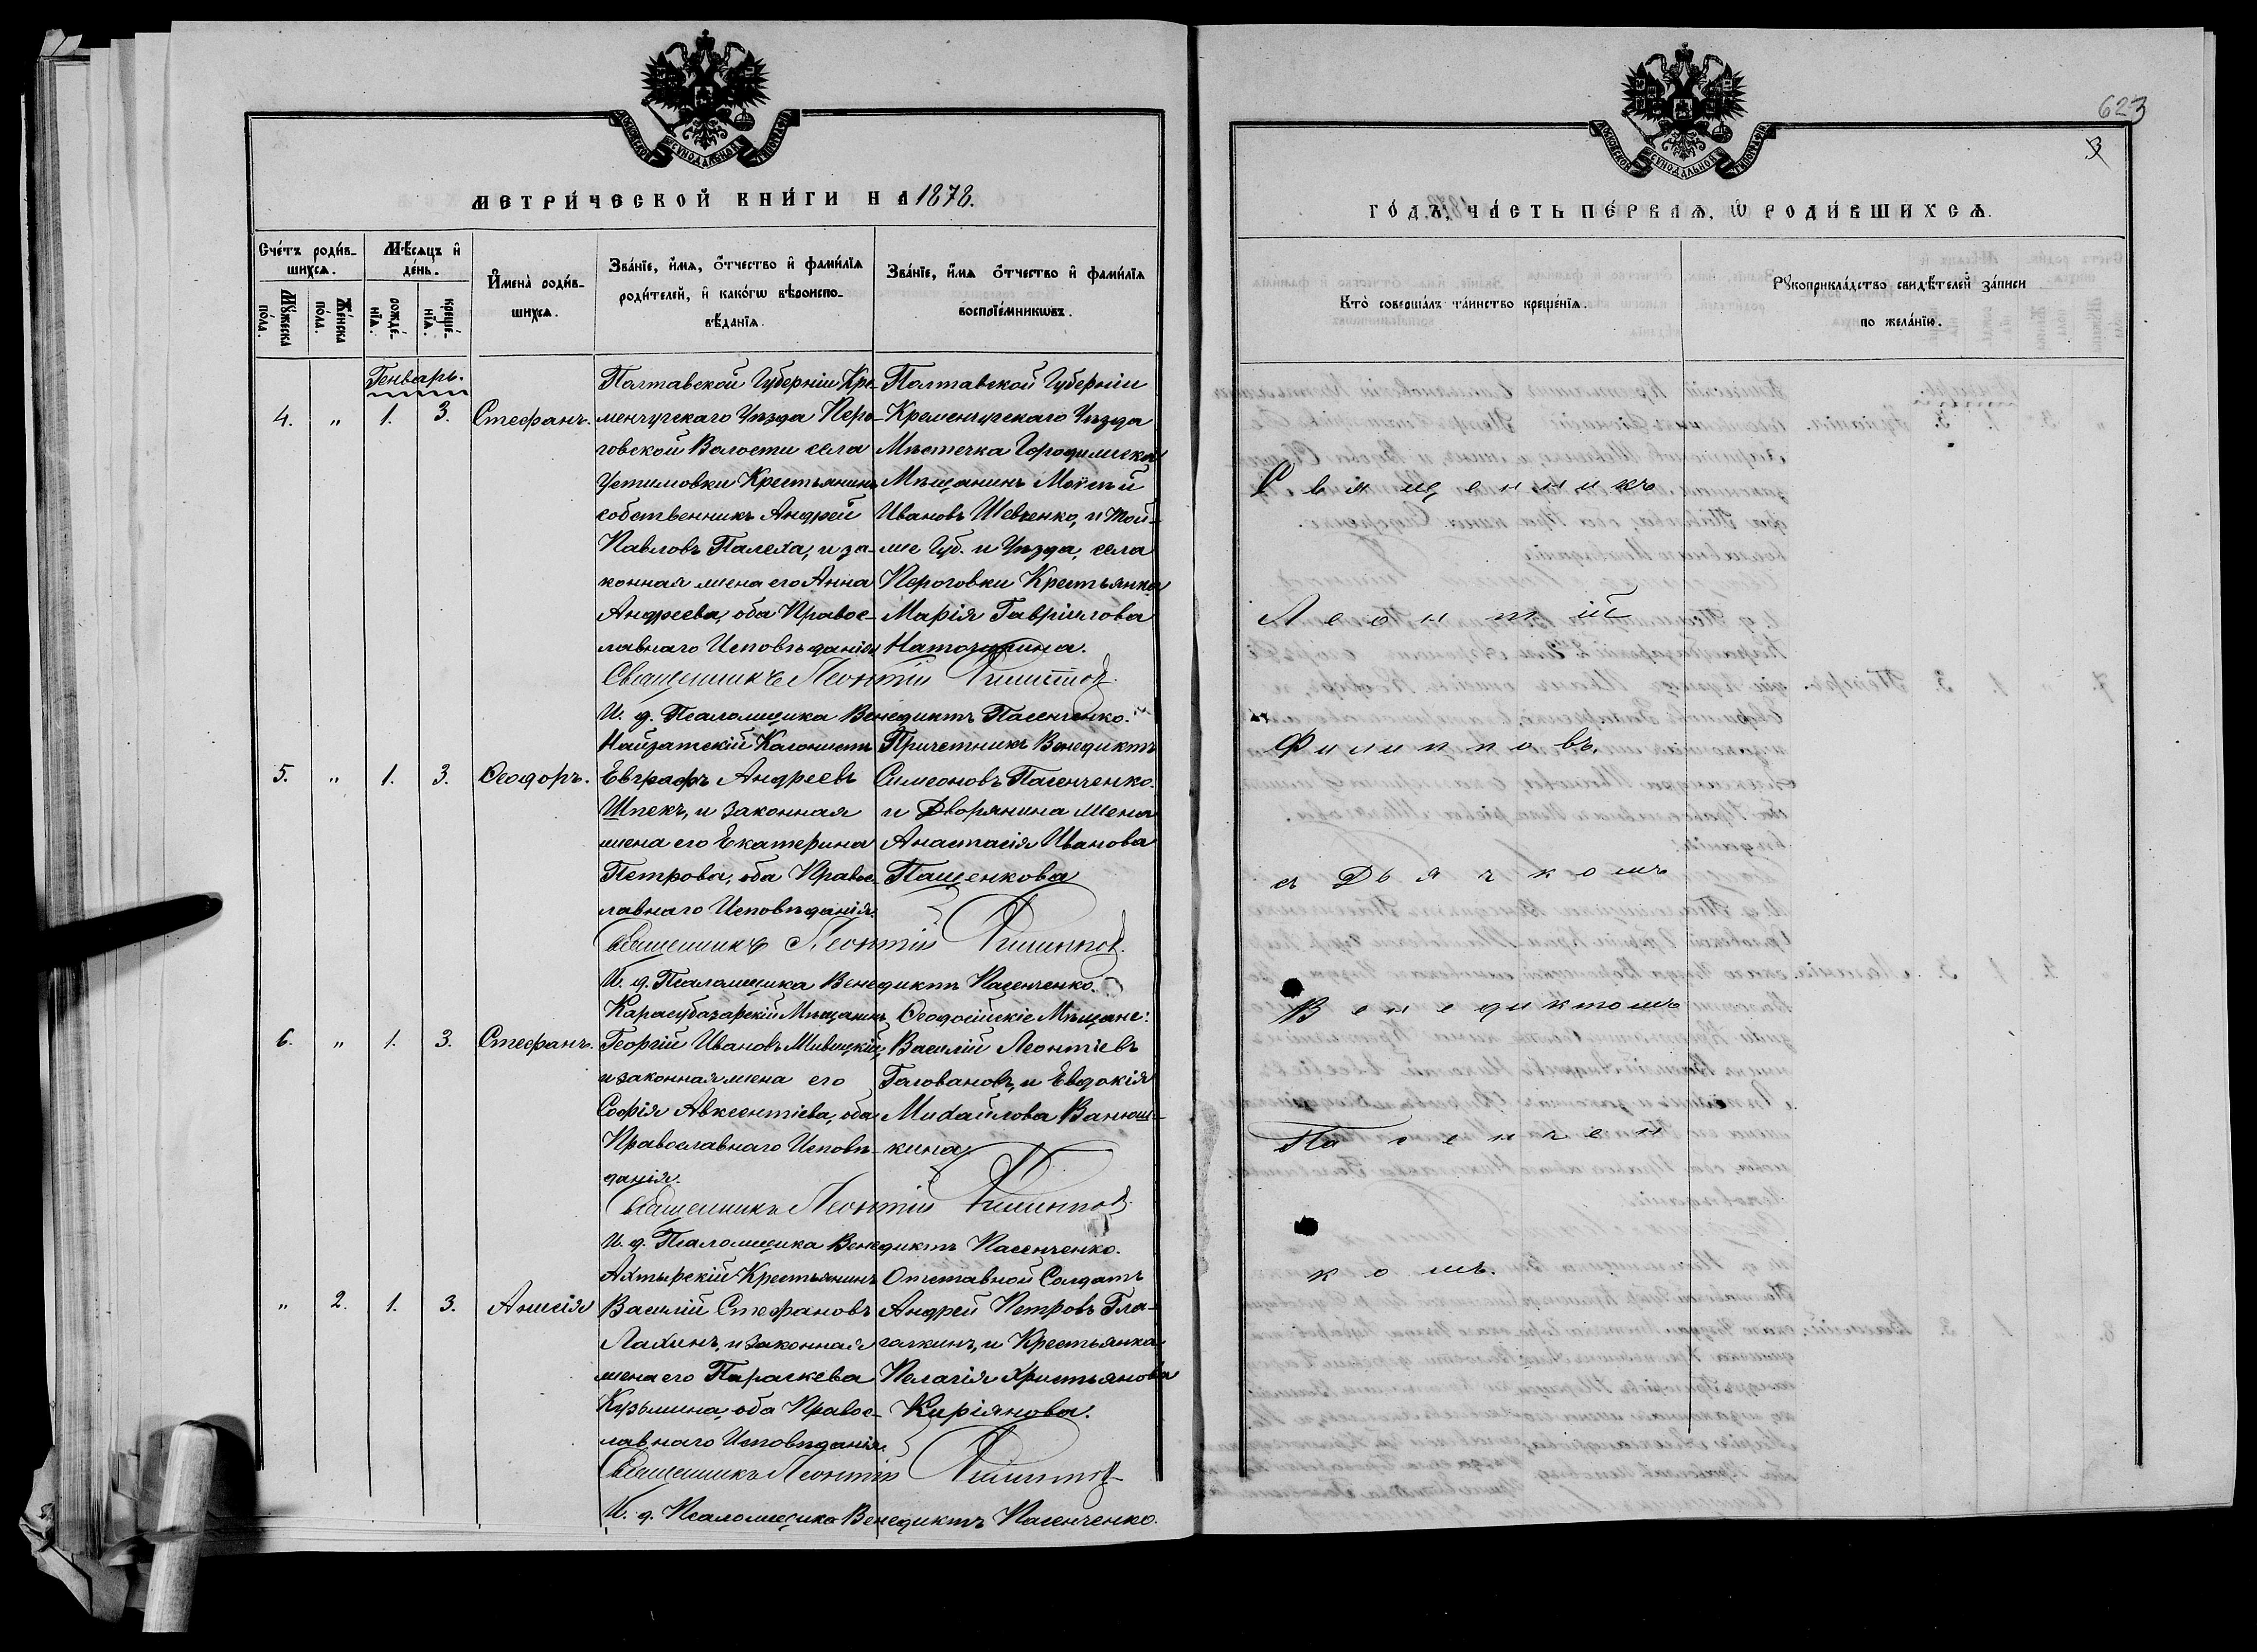 МОСКОВСКОЙ СѴНОДАЛЬНОЙ ТИПОГРАФІИ
МЕТРИ́ЧЕСКОЙ КНИ́ГИ НА 1878.
Сче́тъ роди́в-
шихсѧ.
Мѣ́сяцъ и҆
де́нь.
Мꙋ́жеска по́ла.
Же́нска по́ла.
рожде́-
нїѧ.
креще́-
нїѧ.
И҆мена̀ роди́в-
шихсѧ.
Зва́нїе, и҆́мѧ, ѻ҆́тчество и҆ фамі́лїѧ
роди́телей, и҆ како́гѡ вѣроиспо-
вѣ́данїѧ.
Зва́нїе, и҆́мѧ ѻ҆́тчество и҆ фамі́лїѧ
воспрїе́мникѡвъ.
Генварь.
4. " 1. 3. Стефанъ.
Полтавской Губерніи Кре-
менчугскаго Уѣзда Перо-
говской Волости села
Устимовки Крестьянинъ
собственникъ Андрей
Павловъ Палеха, и за-
конная жена его Анна
Андреева, оба Правос-
лавнаго Исповѣданія
Полтавской Губерніи
Кременчугскаго Уѣзда
Мѣстечка Городилиска
Мѣщанинъ Моѵсѣй
Ивановъ Шевченко, и той-
же Губ. и Уѣзда, села
Пероговки Крестьянка
Марія Гавріилова
Священникъ Леонтій Филиппов
И. д. Псаломщика Венедиктъ Пасенченко.
5. " 1. 3. Ѳеодоръ.
Найзатскій Колонистъ
Евграфъ Андреевъ
Шпекъ, и законная
жена его Екатерина
Петрова, оба Правос-
лавнаго Исповѣданія.
Причетникъ Венедиктъ
Симеоновъ Пасенченко.
и Дворянина жена
Анастасія Иванова
Пащенкова
Священникъ Леонтій Филиппов
И. д. Псаломщика Венедиктъ Пасенченко.
6. " 1. 3. Стефанъ.
Карасубазарскій Мѣщанинъ
Георгій Ивановъ
и законная жена его
Софія Авксентіева, оба
Православнаго Исповѣ-
данія.
Ѳеодосійскіе Мѣщане:
Василій Леонтіевъ
Головановъ, и Евдокія
Михайлова Ванюш-
кина
Священникъ Леонтій Филиппов
И. д. Псаломщика Венедиктъ Пасенченко.
" 2. 1. 3. Анисія
Ахтырскій Крестьянинъ
Василій Стефановъ
Лахинъ, и законная
жена его Параскева
Кузьмина, оба Правос-
лавнаго Исповѣданія.
Отставной Солдатъ
Андрей Петровъ Гла-
галкинъ, и Крестьянка
Пелагія Христьянова
Киріянова.
Священникъ Леонтій Филиппов
И. д. Псаломщика Венедиктъ Пасенченко.
623
3
МОСКОВСКОЙ СѴНОДАЛЬНОЙ ТИПОГРАФІИ
ГО́ДЪ, ЧА́СТЬ ПЕ́РВАѦ, Ѡ҆ РОДИ́ВШИХСѦ.
Кто̀ соверша́лъ та́инство креще́нїѧ.
Рꙋкоприкла́дство свидѣ́телей за́писи
по жела́нїю.
Священникъ
Леонтій
Филипповъ
съ Дьячкомъ
Венедиктомъ
Пасенчен
комъ.